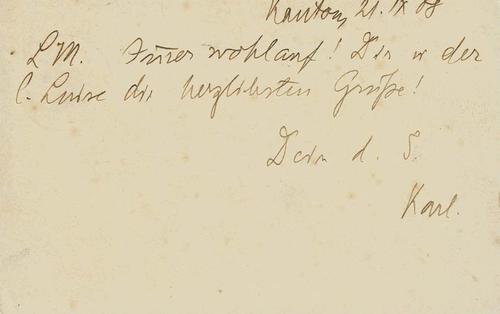 Kanton, 21. IX 08
L. M. Immer wohlauf! Dir u der
l. Luise die herzlichsten Grüße!
Dein d. S.
Karl.